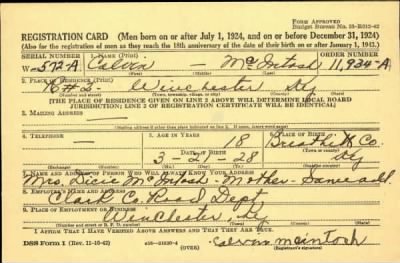 FORM APPROVED
Budget Bureau No. 33-R012-42
REGISTRATION CARD (Men born on or after July 1, 1924, and on or before December 31, 1924)
(Also for the registration of men as they reach the 18th anniversary of the date of their birth on or after January 1, 1943.)
SERIAL NUMBER 1. NAME (Print) ORDER NUMBER
W 572-A Calvin — McIntosh 11,934-A
(First) (Middle) (Last)
2. PLACE OF RESIDENCE (Print)
R#2- Winchester Ky
(Number and street) (Town, township, village, or city) (County) (State)
[THE PLACE OF RESIDENCE GIVEN ON LINE 2 ABOVE WILL DETERMINE LOCAL BOARD
JURISDICTION; LINE 2 OF REGISTRATION CERTIFICATE WILL BE IDENTICAL]
3. MAILING ADDRESS —
[Mailing address if other than place indicated on line 2. If same, insert word same]
4. TELEPHONE 5. AGE IN YEARS 6. PLACE OF BIRTH
— 18 Breathitt Co.
DATE OF BIRTH (Town or county)
3 - 21 - 28 Ky
(Exchange) (Number) (Mo.) (Day) (Yr.) (State or country)
7. NAME AND ADDRESS OF PERSON WHO WILL ALWAYS KNOW YOUR ADDRESS
Mrs. McIntosh - Mother - Same add.
8. EMPLOYER'S NAME AND ADDRESS
Clark Co. Road Dept
9. PLACE OF EMPLOYMENT OR BUSINESS
Winchester, Ky
(Number and street or R. F. D. number) (Town) (County) (State)
I AFFIRM THAT I HAVE VERIFIED ABOVE ANSWERS AND THAT THEY ARE TRUE.
DSS Form 1 (Rev. 11-16-42) (OVER) calvin mcintoch